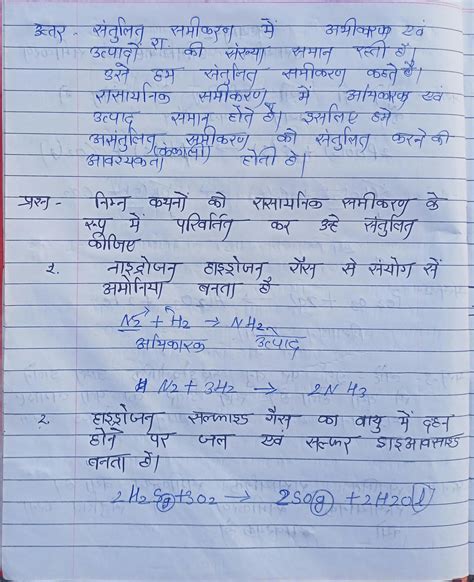 उत्तर - संतुलित समीकरण में अभीकारक एवं
उत्पादों की संख्या समान रहती है।
उसे हम संतुलित समीकरण कहते है।
रासायनिक समीकरण में अभिकारक एवं
उत्पाद समान होते है। इसलिए हमे
असंतुलित समीकरण को संतुलित करने की
आवश्यकता (कंकाली) होती है।
प्रश्न - निम्न कथनों को रासायनिक समीकरण के
रूप में परिवर्तित कर उन्हे संतुलित
कीजिए
1. नाइट्रोजन हाइड्रोजन गैस से संयोग सें
अमोनिया बनता है
N2 + H2 → NH3
अभिकारक उत्पाद
N2 + 3H2 → 2NH3
2. हाइड्रोजन सल्फाइड गैस का वायु में दहन
होने पर जल एवं सल्फर डाइआक्साइड
बनता है।
2H2S(g)+3O2 → 2SO(g) + 2H2O(l)